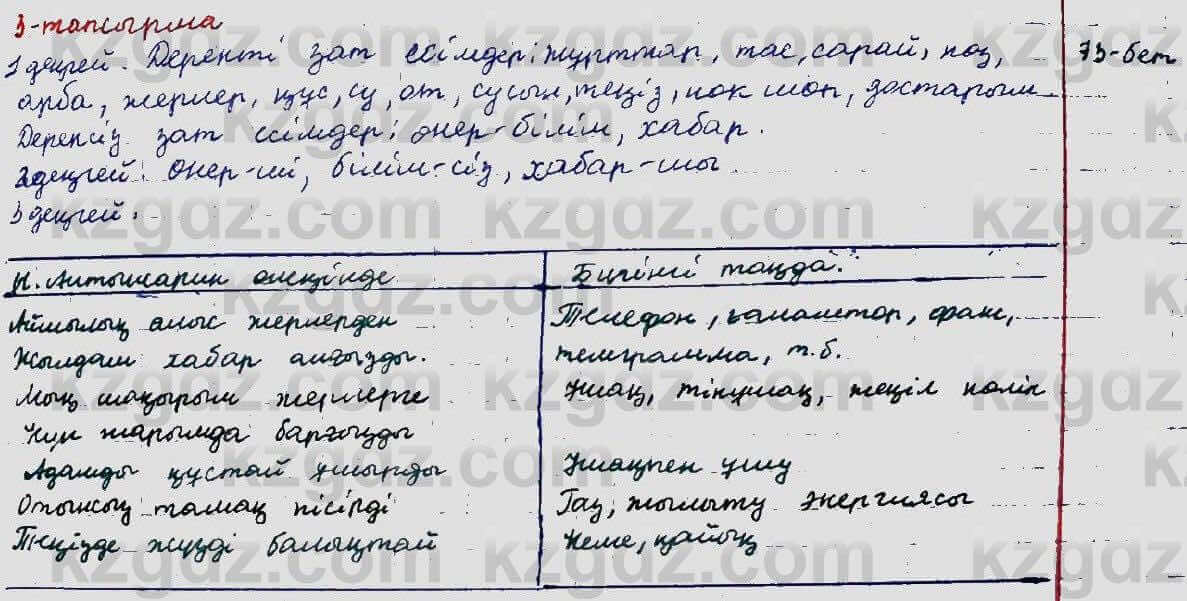 3-тапсырма
1 деңгей. Деректі зат есімдер: жұрттар, тас, сарай, көз, 73-бет
арба, жермер, құс, су, от, сусын, теңіз, көк шөп, достарым
Дерексіз зат есімдер: өнер-білім, хабар.
2 деңгей: Өнер-ші, білім-сіз, хабар-шы
3 деңгей.
Ы. Алтынсарин өлеңінде
Бүгінгі таңда.
Айшылық алыс жерлерден
Телефон, факс,
Жылдам хабар алғызды.
телеграмма, т.б.
Мың шақырым жерлерге
Ұшақ, тікұшақ, жеңіл көлік
Күн жарымда барғызды
Адамды құстай ұшырды
Ұшақпен ұшу
Отынсыз тамақ пісірді
Газ, жылыту энергиясы
Теңізде жүзді балықтай
Кеме, қайық
kzgdz.com